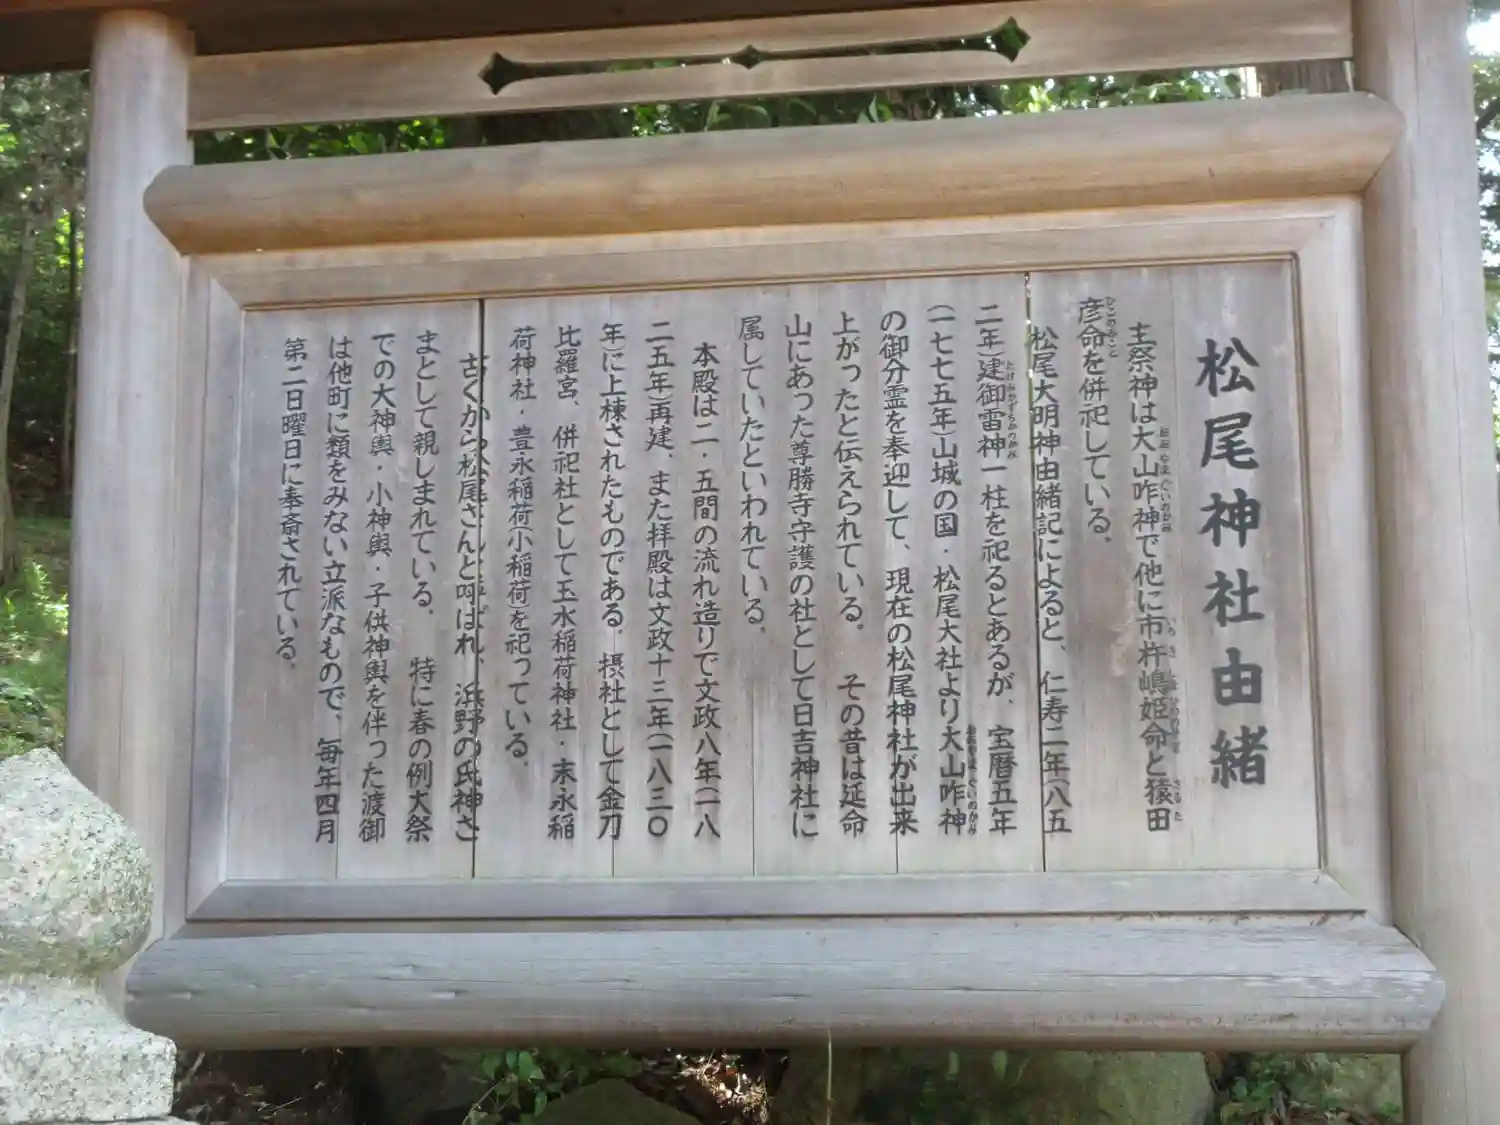 松尾神社由緒
主祭神は大山咋神で他に市杵嶋姫命と猿田
彦命を併祀している。
松尾大明神由緒記によると、仁寿二年(八五
二年)建御雷神一柱を祀るとあるが、宝暦五年
(一七七五年)山城の国・松尾大社より大山咋神
の御分霊を奉迎して、現在の松尾神社が出来
上がったと伝えられている。その昔は延命
山にあった尊勝寺守護の社として日吉神社に
属していたといわれている。
本殿は二・五間の流れ造りで文政八年(一八
二五年)再建、また拝殿は文政十三年(一八三〇
年に上棟されたものである。摂社として金刀
比羅宮、併祀社として玉水稲荷神社・末永稲
荷神社・豊永稲荷(小稲荷)を祀っている。
古くから松尾さんと呼ばれ、浜野の氏神さ
まとして親しまれている。特に春の例大祭
での大神輿・小神輿・子供神輿を伴った渡御
は他町に類をみない立派なもので、毎年四月
第二日曜日に奉斎されている。